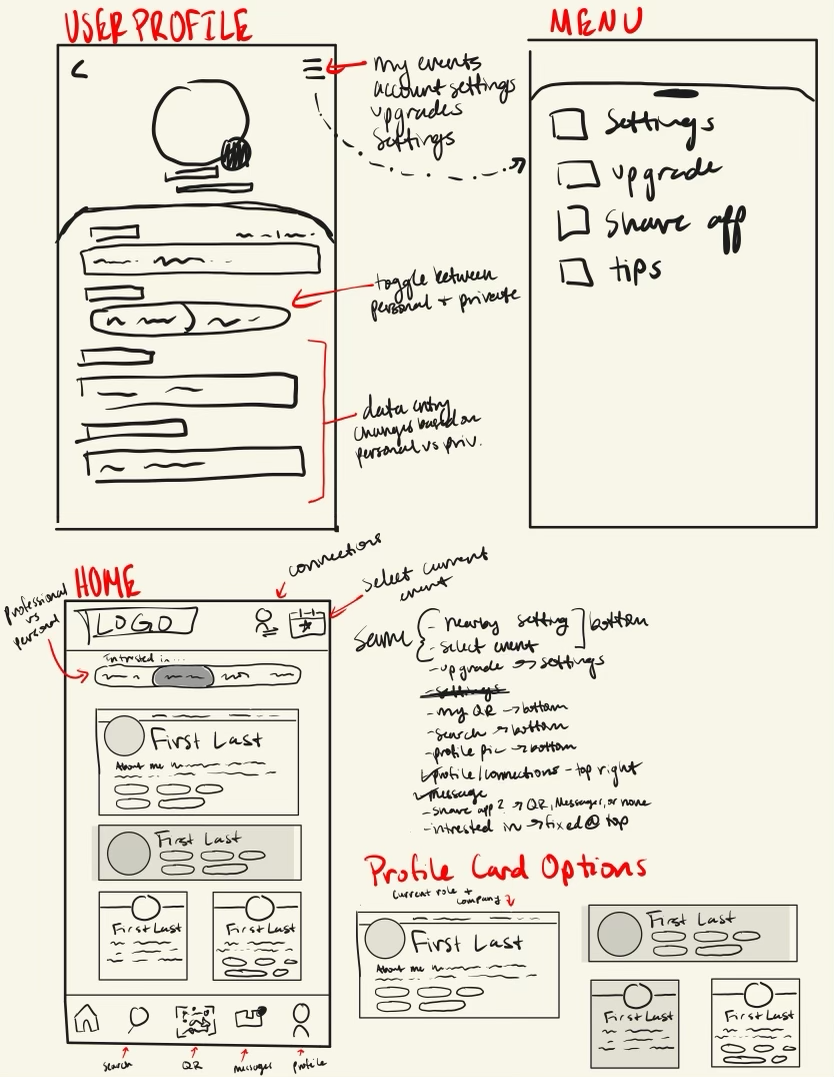 USER PROFILE
my events
account settings
upgrades
Settings
toggle between
personal + private
data entry
changes based on
personal vs priv.
MENU
Settings
upgrade
Share app
tips
HOME
Professional
vs
personal
connections
select current
event
LOGO
Intrested in...
First Last
About me
First Last
First Last
First Last
search
QR
messages
profile
same
- nearby setting
- select event
bottom
- upgrade → settings
- settings
- my QR → bottom
- search → bottom
- profile pic → bottom
profile/connections - top right
message
- share app? → QR, Messager, or none
- intrested in → fixed @ top
Profile Card Options
current role +
company
First Last
About me
First Last
First Last
First Last